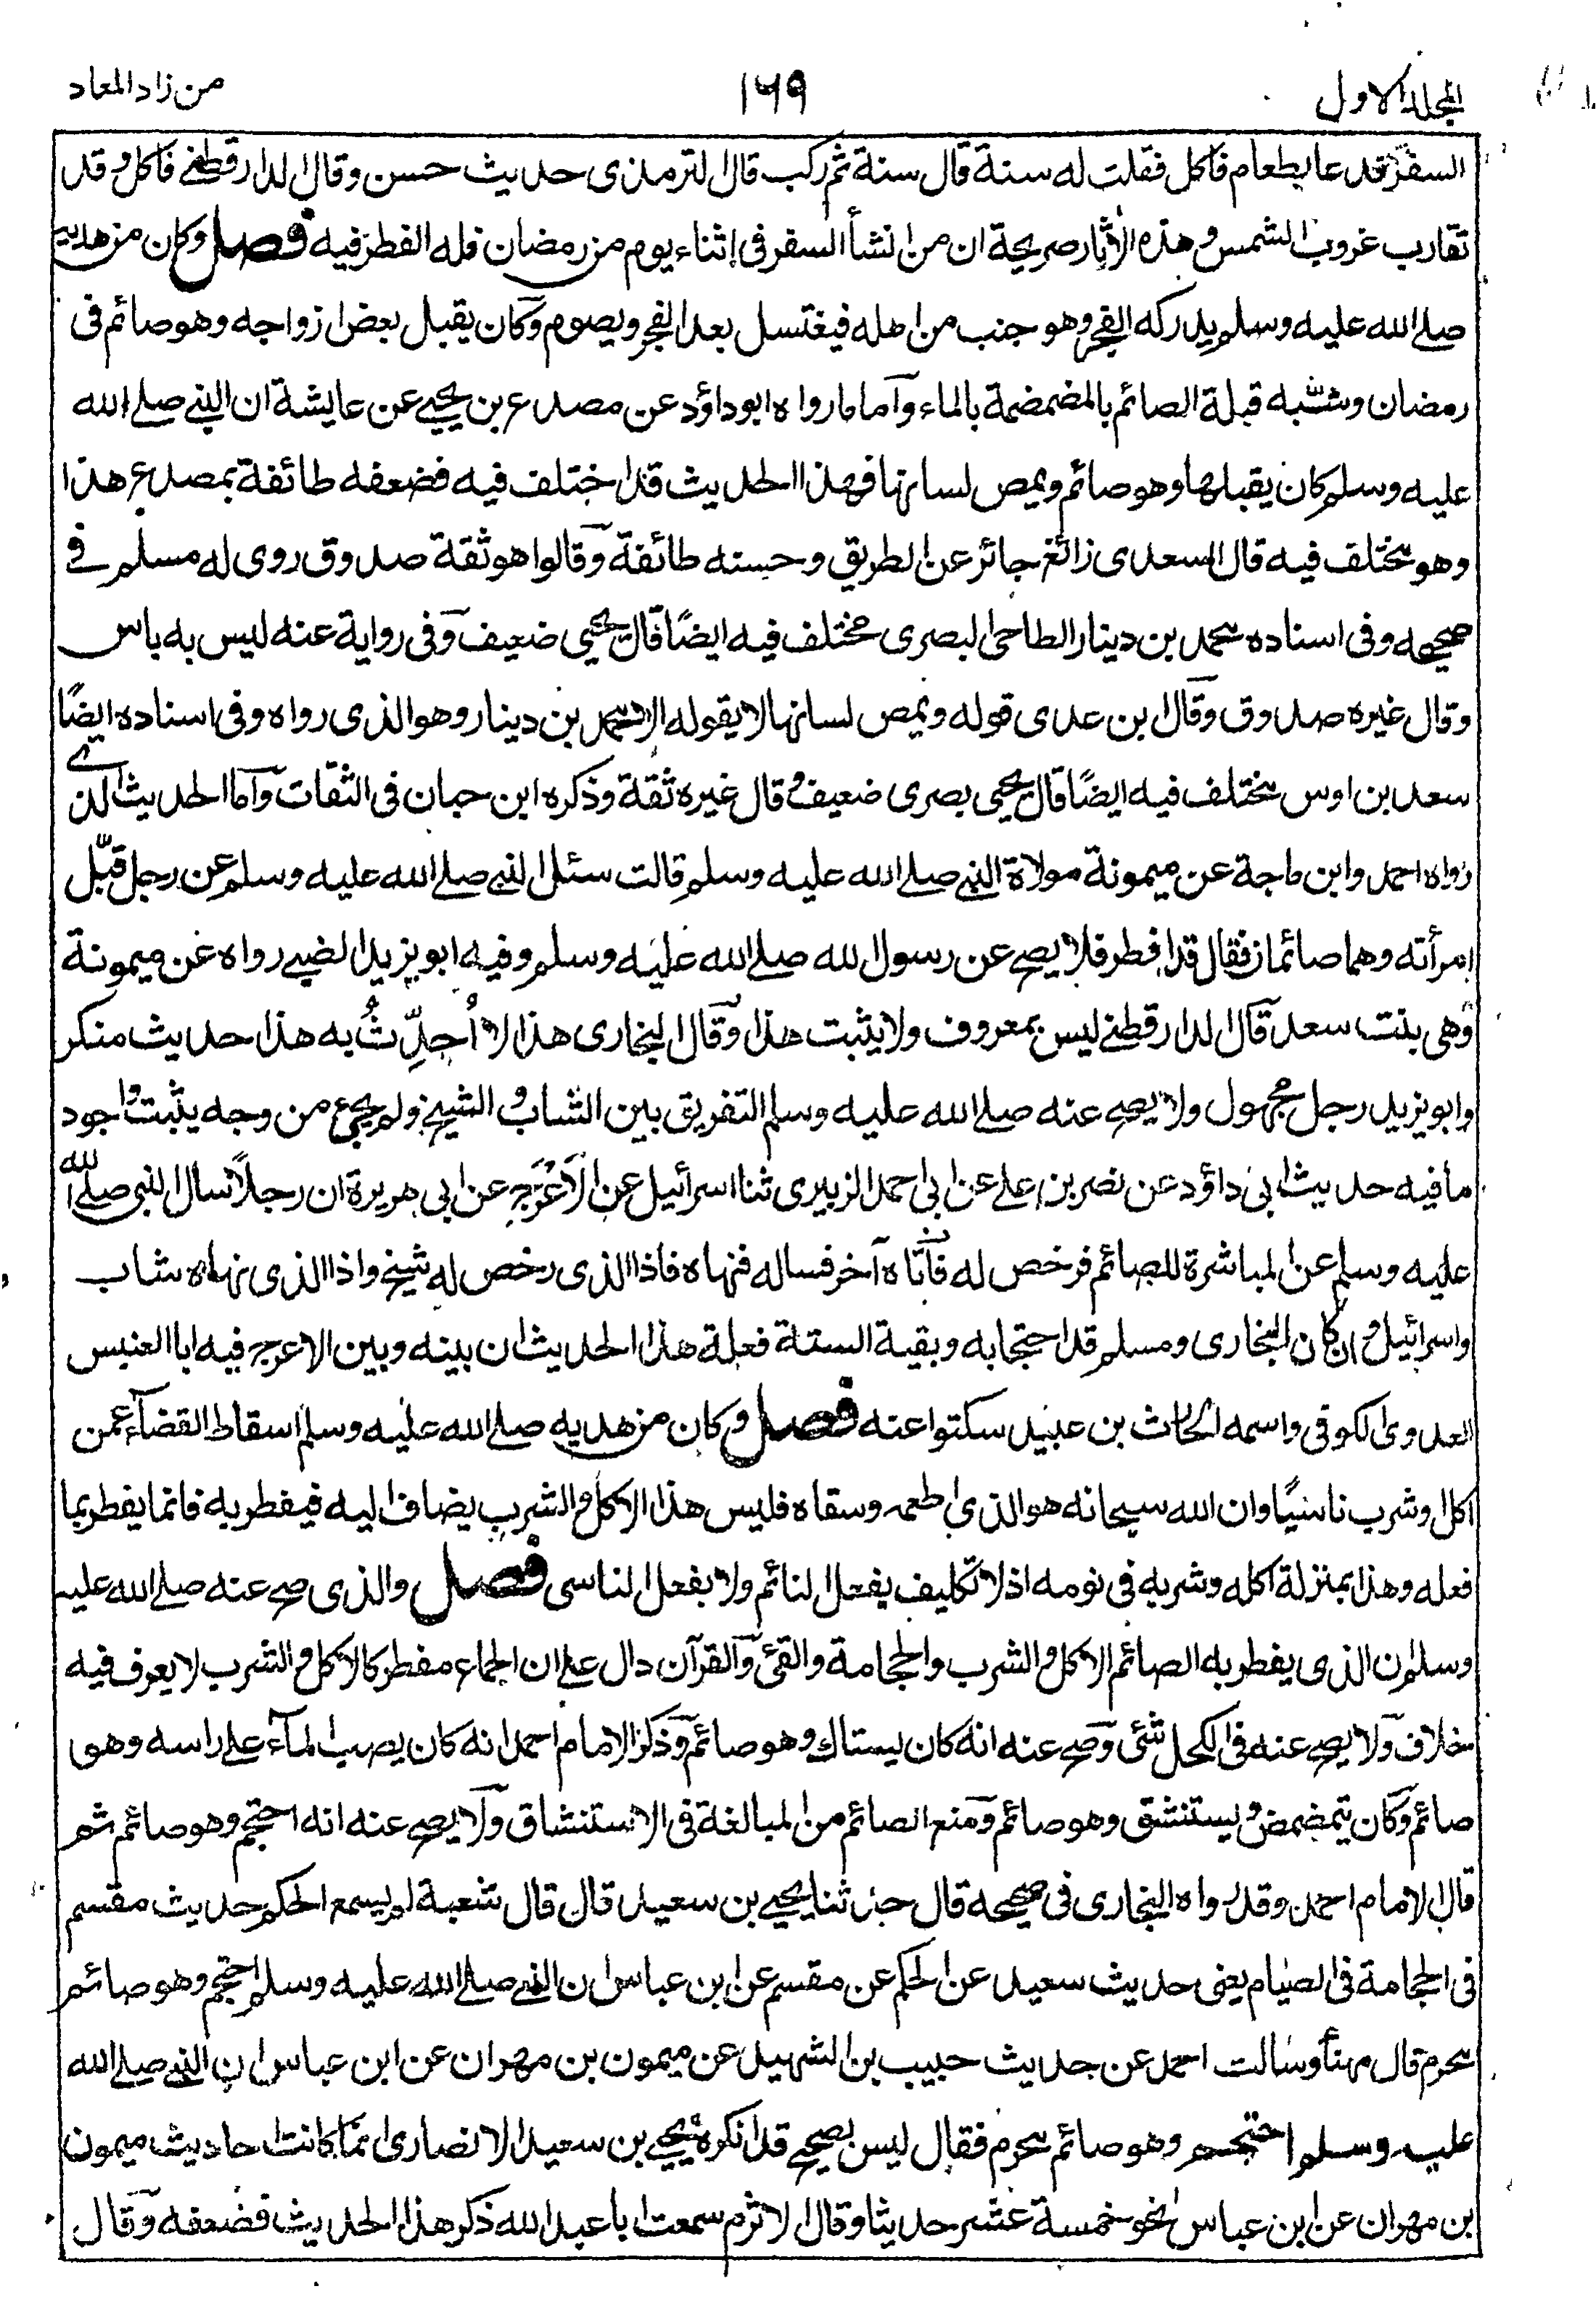 المجلد الاول ١٦٩ من زاد المعاد
السفر فدعا بطعام فاكل فقلت له سنة قال سنة ثم ركب قال الترمذى حديث حسن وقال الدارقطنے فاكل وقد
تقارب غروب الشمس وهذه الآثار صريحة ان من انشأ السفر فى اثناء يوم من رمضان فله الفطر فيه فصل وكان من هديه
صلے الله عليه وسلم يدركه الفجر وهو جنب من اهله فيغتسل بعد الفجر ويصوم وكان يقبل بعض ازواجه وهو صائم فى
رمضان وشبّه قبلة الصائم بالمضمضة بالماء وآما ما رواه ابو داؤد عن مصدع بن يحيے عن عايشة ان النبے صلے الله
عليه وسلم كان يقبلها وهو صائم ويمص لسانها فهذا الحديث قد اختلف فيه فضعفه طائفة بمصدع هذا
وهو مختلف فيه قال السعدى زائغ جائر عن الطريق وحسنه طائفة وقالوا هو ثقة صدوق روى له مسلم فے
صحيحه وفى اسناده محمد بن دينار الطاحى البصرى مختلف فيه ايضًا قال يحيى ضعيف وفى رواية عنه ليس به باس
وقال غيره صدوق وقال ابن عدى قوله ويمص لسانها لا يقوله الا محمد بن دينار وهو الذى رواه وفى اسناده ايضًا
سعد بن اوس مختلف فيه ايضًا قال يحيى بصرى ضعيف وقال غيره ثقة وذكره ابن حبان فى الثقات وآما الحديث الذے
رواه احمد وابن ماجة عن ميمونة مولاة النبے صلے الله عليه وسلم قالت سئل النبے صلے الله عليه وسلم عن رجل قبّل
امرأته وهما صائمان فقال قد افطر فلا يصح عن رسول الله صلے الله عليه وسلم وفيه ابو يزيد الضبے رواه عن ميمونة
وهى بنت سعد قال الدارقطنے ليس بمعروف ولا يثبت هذا وقال البخارى هذا لا اُحدِّثُ به هذا حديث منكر
وابو يزيد رجل مجهول ولا يصح عنه صلے الله عليه وسلم التفريق بين الشاب والشيخ ولم يجئ من وجه يثبت واجود
ما فيه حديث ابى داؤد عن نصر بن على عن ابى احمد الزبيرى ثنا اسرائيل عن الاَعْرَج عن ابى هريرة ان رجلاً سال النبى صلے الله
عليه وسلم عن المباشرة للصائم فرخص له فآتاه آخر فساله فنهاه فاذا الذى رخص له شيخ واذا الذى نهاه شاب
واسرائيل وان كان البخارى ومسلم قد احتجا به وبقية الستة فعلة هذا الحديث ان بينه وبين الاعرج فيه ابا العنبس
العدوى الكوفى واسمه الحارث بن عبيد سكتوا عنه فصل وكان من هديه صلے الله عليه وسلم اسقاط القضآء عمن
اكل وشرب ناسيًا وان الله سبحانه هو الذى اطعمه وسقاه فليس هذا الاكل والشرب يضاف اليه فيفطر به فانما يفطر بما
فعله وهذا بمنزلة اكله وشربه فى نومه اذ لا تكليف بفعل النائم ولا بفعل الناسى فصل والذى صح عنه صلے الله عليه
وسلم ان الذى يفطر به الصائم الاكل والشرب والحجامة والقئ والقرآن دال على ان الجماع مفطر كالاكل والشرب لا يعرف فيه
خلاف ولا يصح عنه فى الكحل شئ وصح عنه انه كان يستاك وهو صائم وذكر الامام احمد انه كان يصب المآء على راسه وهو
صائم وكان يتمضمض ويستنشق وهو صائم ومنع الصائم من المبالغة فى الاستنشاق ولا يصح عنه انه احتجم وهو صائم
قال الامام احمد وقد رواه البخارى فى صحيحه قال حدثنا يحيے بن سعيد قال قال شعبة لم يسمع الحكم حديث مقسم
فى الحجامة فى الصيام يعنى حديث سعيد عن الحكم عن مقسم عن ابن عباس ان النبے صلے الله عليه وسلم احتجم وهو صائم
محرم قال مهنأ وسالت احمد عن حديث حبيب بن الشهيد عن ميمون بن مهران عن ابن عباس ان النبے صلے الله
عليه وسلم احتجم وهو صائم محرم فقال ليس بصحيح قد انكره يحيے بن سعيد الانصارى انما كانت احاديث ميمون
بن مهران عن ابن عباس نحو خمسة عشر حديثا وقال الاثرم سمعت ابا عبد الله ذكر هذا الحديث فضعفه وقال